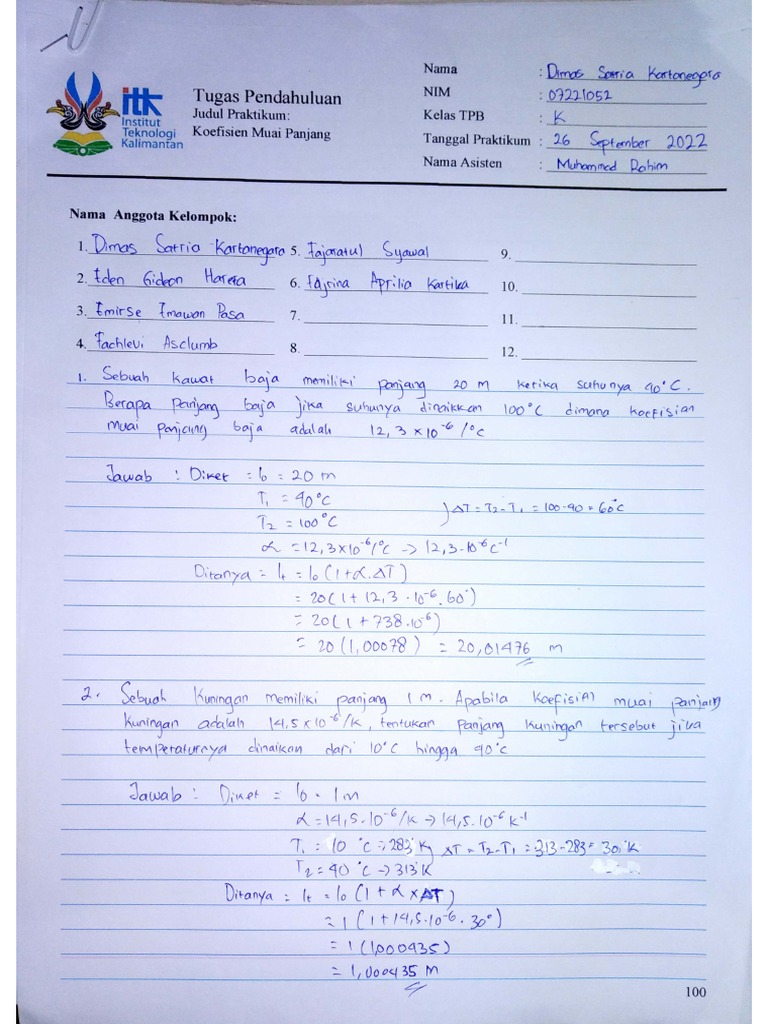 itk
Institut
Teknologi
Kalimantan
Tugas Pendahuluan
Judul Praktikum:
Koefisien Muai Panjang
Nama : Dimas Satria Kartanegara
NIM : 07221052
Kelas TPB : K
Tanggal Praktikum : 26 September 2022
Nama Asisten : Muhammed Rahim
Nama Anggota Kelompok:
1. Dimas Satria Kartanegara 5. Fajaratul Syawal 9.
2. Eden Gideon Hareta 6. Fajrina Aprilia Kartika 10.
3. Emirse Imawan Pasa 7. 11.
4. Fachlevi Asclumb 8. 12.
1. Sebuah kawat baja memiliki panjang 20 m ketika suhunya 40°C.
Berapa panjang baja jika suhunya dinaikkan 100°C dimana koefisian
muai panjang baja adalah 12,3 x 10⁻⁶ /°C
Jawab : Diket = l₀ = 20 m
T₁ = 40°C
T₂ = 100°C
} ΔT = T₂ - T₁ = 100-40 = 60°C
α = 12,3 x 10⁻⁶/°C → 12,3 · 10⁻⁶ C⁻¹
Ditanya = lt = l₀ (1 + α . ΔT)
= 20 (1 + 12,3 · 10⁻⁶ . 60°)
= 20 (1 + 738 . 10⁻⁶)
= 20 (1,00078) = 20,01476 m
2. Sebuah kuningan memiliki panjang 1 m. Apabila koefisian muai panjang
kuningan adalah 14,5 x 10⁻⁶ /K, tentukan panjang kuningan tersebut jika
temperaturnya dinaikan dari 10°C hingga 40°C
Jawab : Diket = l₀ = 1 m
α = 14,5 . 10⁻⁶ /K → 14,5 . 10⁻⁶ K⁻¹
T₁ = 10 °C → 283° K } ΔT = T₂ - T₁ = 313 - 283 = 30° K
T₂ = 40 °C → 313° K
Ditanya = lt = l₀ (1 + α x ΔT)
= 1 (1 + 14,5 . 10⁻⁶ . 30°)
= 1 (1,000435)
= 1,000435 m
100